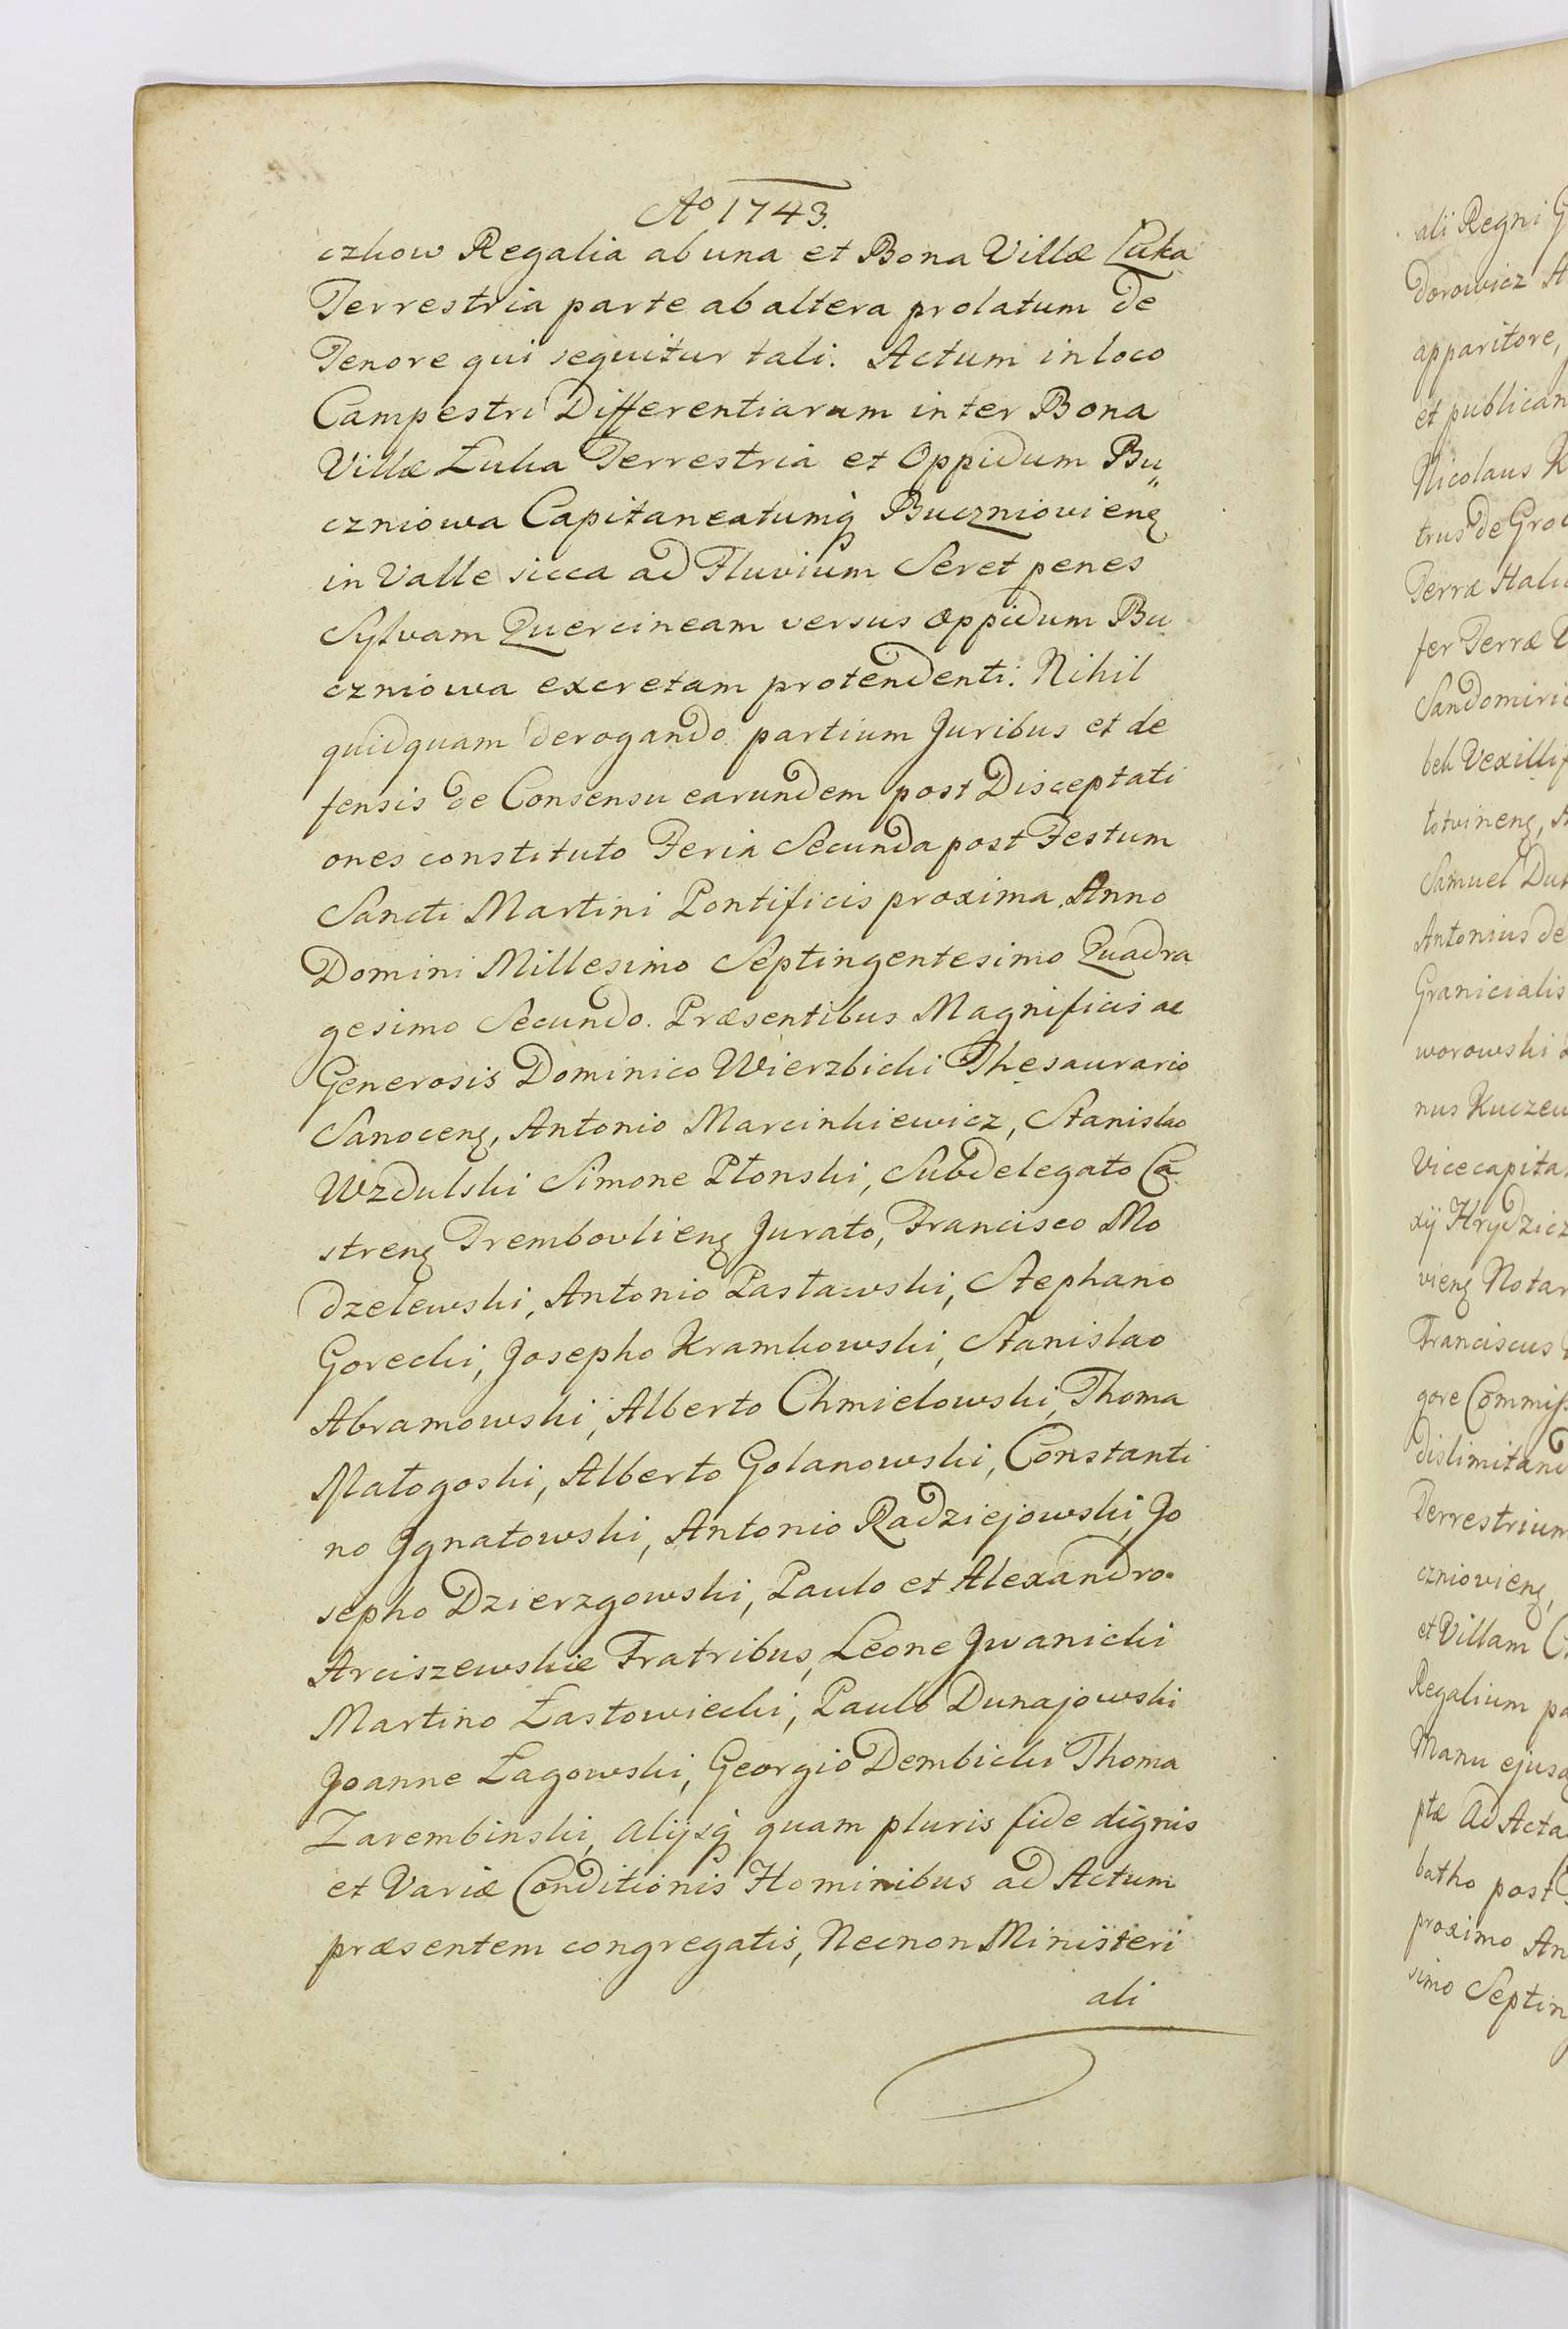 Ao 1743.
czkow Regalia ab una et Bona Villæ Łuka
Terrestria parte ab altera prolatum de
Tenore qui sequitur tali. Actum in loco
Campestri Differentiarum inter Bona
Villæ Łuka Terrestria et Oppidum Bu„
czniowa Capitaneatumq́ Buczniovienꝫ
in Valle sicca ad Fluvium Seret penes
Sylvam Quercineam versus oppidum Bu
czniowa excretam protendenti. Nihil
quidquam derogando partium Juribus et de
fensis de Consensu earundem post Disceptati
ones constituto Feria Secunda post Festum
Sancti Martini Pontificis proxima Anno
Domini Millesimo Septingentesimo Quadra
gesimo Secundo. Præsentibus Magnificis ac
Generosis Dominico Wierzbicki Thesaurario
Sanocenꝫ, Antonio Marcinkiewicz, Stanislao
Wzdulski Simone Płonski, Subdelegato Ca
strenꝫ Trembovlienꝫ Jurato, Francisco Mo
dzelewski, Antonio Pasławski, Stephano
Gorecki, Josepho Kramkowski, Stanislao
Abramowski, Alberto Chmielowski, Thoma
Małogoski, Alberto Golanowski, Constanti
no Jgnatowski, Antonio Radziejowski, Jo
sepho Dzierzgowski, Paulo et Alexandro
Arciszewskie Fratribus, Leone Jwanicki
Martino Łastowiecki, Paulo Dunajowski
Joanne Łagowski, Georgio Dembicki Thoma
Zarembinski, alijsq́ quam pluris fide dignis
et Variæ Conditionis Hominibus ad Actum
præsentem congregatis, Necnon Ministeri
ali
ali Regni
dorowicz
apparitore,
et publican
Nicolaus
trus de Gro
Terræ Hali
fer Terræ
Sandomiri
beh Vexillif
Samuel
Antonius de
Granicialis
worowski
nus Kuczew
Vicecapita
xij Hrydzicz
vienꝫ Notar
Franciscus
gore Commiss
dislimitand
Terrestrium
czniovienꝫ,
et Villam
Regalium
Manu ejusd
ptæ Ad Acta
batho post
proximo An
simo Septin